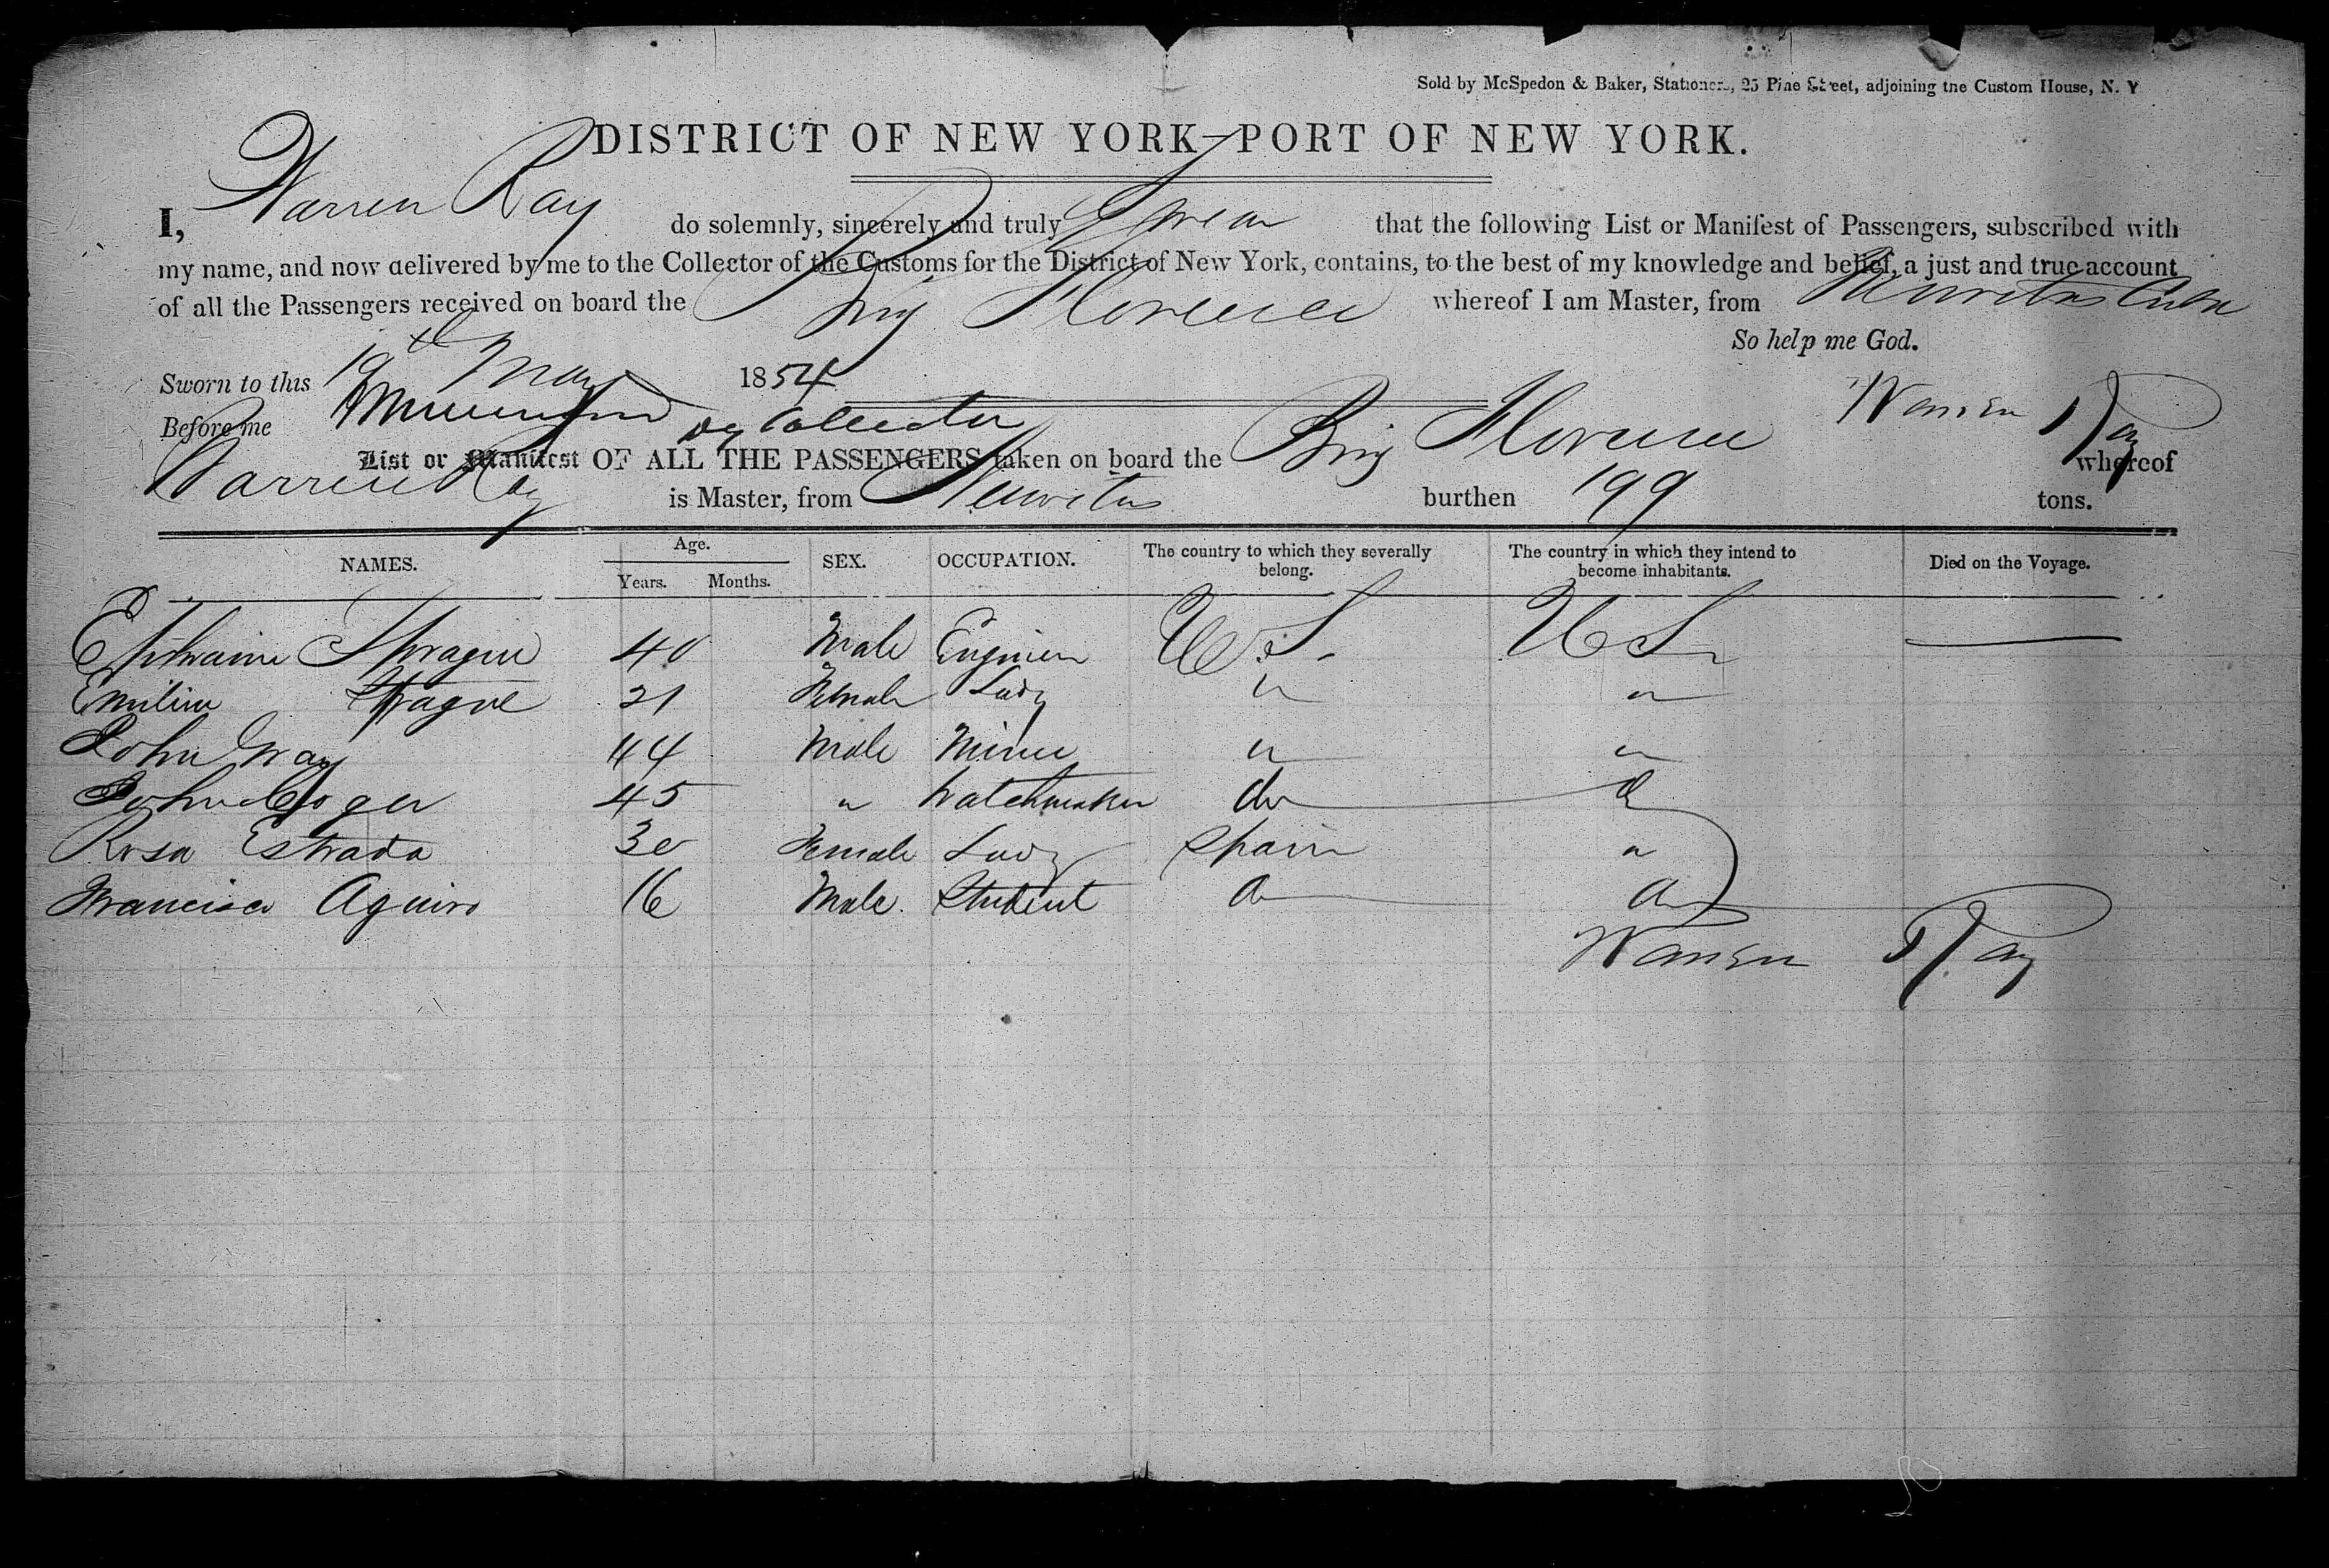 Sold by McSpedon & Baker, Stationers, 25 Pine Street, adjoining the Custom House, N. Y
DISTRICT OF NEW YORK—PORT OF NEW YORK.
I, Warren Ray do solemnly, sincerely and truly Swear that the following List or Manifest of Passengers, subscribed with
my name, and now delivered by me to the Collector of the Customs for the District of New York, contains, to the best of my knowledge and belief, a just and true account
of all the Passengers received on board the Brig Florence whereof I am Master, from Nuevitas Cuba
So help me God.
Sworn to this 19th May 1854
Before me Dy Collector Warren Ray
List or Manifest OF ALL THE PASSENGERS taken on board the Brig Florence whereof
Warren Ray is Master, from Neuvitas burthen 199 tons.
NAMES. Age. SEX. OCCUPATION. The country to which they severally belong. The country in which they intend to become inhabitants. Died on the Voyage.
Years. Months.
Ephraim Sprague 40 Male Engineer U.S. US
Emiline Sprague 21 Female Lady " "
John Gray 44 Male Miner " "
John 45 " Watchmaker do do
Rosa Estrada 30 Female Lady Spain "
Francisco Aguiro 16 Male Student do do
Warren Ray